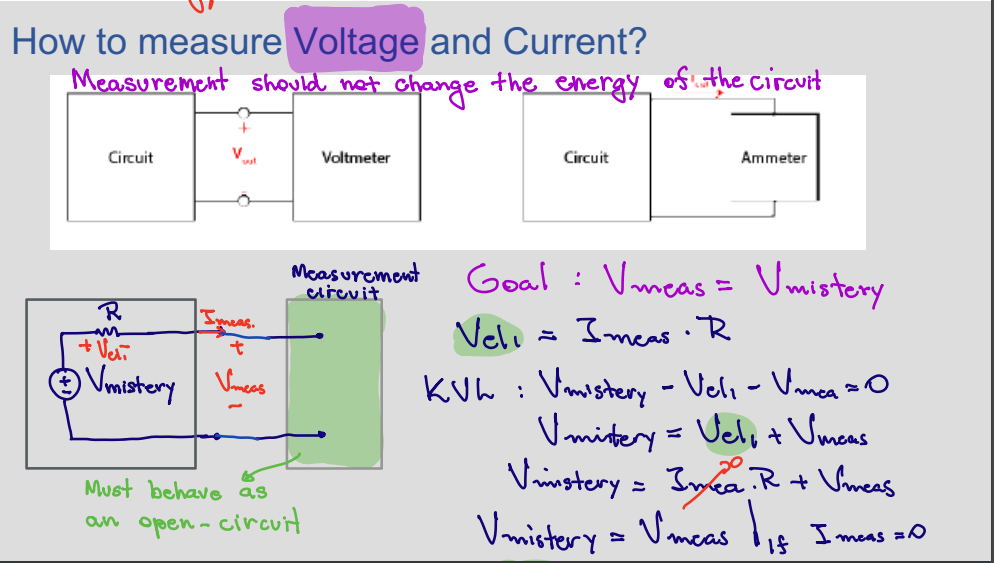 How to measure Voltage and Current?
Measurement should not change the energy of the circuit
Circuit
+
Vout
-
Voltmeter
Circuit
Ammeter
Measurement
circuit
R
+ Vel1 -
Vmistery
Imeas.
+
Vmeas
-
Must behave as
an open-circuit
Goal : Vmeas = Vmistery
Vel1 = Imeas . R
KVL : Vmistery - Vel1 - Vmea = 0
Vmistery = Vel1 + Vmeas
Vmistery = Imea . R + Vmeas
Vmistery = Vmeas | if Imeas = 0